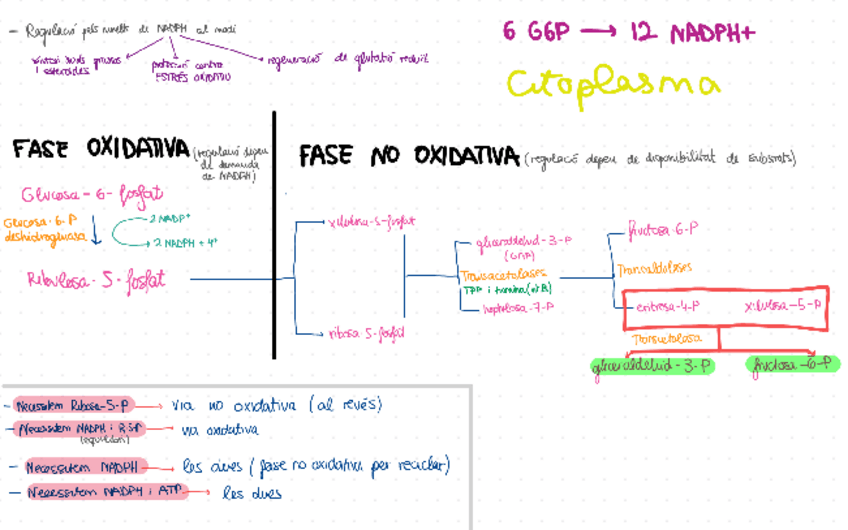 - Regulació pels nivells de NADPH al medi
síntesi àcids grassos
i esteroides
protecció contra
ESTRÈS OXIDATIU
regeneració de glutatió reduït
6 G6P → 12 NADPH+
Citoplasma
FASE OXIDATIVA (regulació depèn
de demanda
de NADPH)
FASE NO OXIDATIVA (regulació depèn de disponibilitat de substrats)
Glucosa-6-fosfat
Glucosa-6-P
deshidrogenasa
2 NADP+
2 NADPH + H+
Ribulosa-5-fosfat
xilulosa-5-fosfat
ribosa-5-fosfat
gliceraldehid-3-P
(GAP)
Transacetolases
TPP i tiamina
heptulosa-7-P
fructosa-6-P
Transaldolases
eritrosa-4-P
xilulosa-5-P
Transcetolasa
gliceraldehid-3-P
fructosa-6-P
- Necessitem Ribosa-5-P → via no oxidativa (al revés)
- Necessitem NADPH i R5P → via oxidativa
(equilibri)
- Necessitem NADPH → les dues (fase no oxidativa per reciclar)
- Necessitem NADPH i ATP → les dues